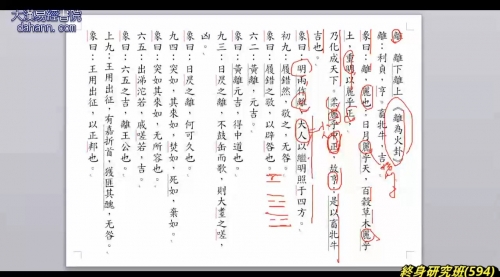 大漢易經書院
dahann.com
離 離下離上 《離為火卦》
離：利貞，亨。畜牝牛，吉。
彖曰：離，麗也。日月麗乎天，百穀草木麗乎
土，重明以麗乎正，
乃化成天下。柔麗乎中正，故亨，是以畜牝牛
吉也。
象曰：明兩作離，大人以繼明照于四方。
初九：履錯然，敬之，无咎。
象曰：履錯之敬，以辟咎也。
六二：黃離，元吉。
象曰：黃離元吉，得中道也。
九三：日昃之離，不鼓缶而歌，則大耋之嗟，
凶。
象曰：日昃之離，何可久也。
九四：突如，其來如，焚如，死如，棄如。
象曰：突如其來如，无所容也。
六五：出涕沱若，戚嗟若，吉。
象曰：六五之吉，離王公也。
上九：王用出征，有嘉折首，獲匪其醜，无咎。
象曰：王用出征，以正邦也。
終身研究班(594)